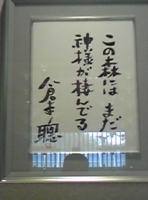 この森には まだ
神様が棲んでる
倉本聰